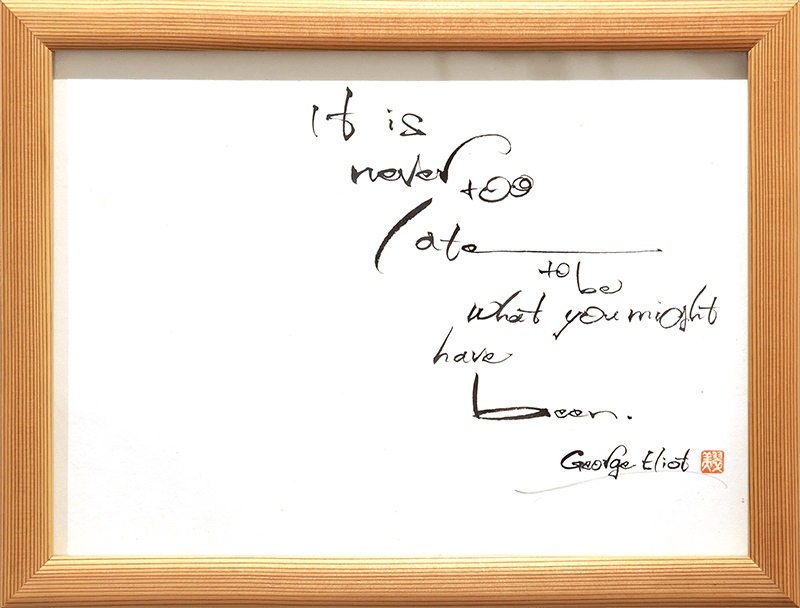 It is
never too
late
to be
what you might
have
been.
George Eliot